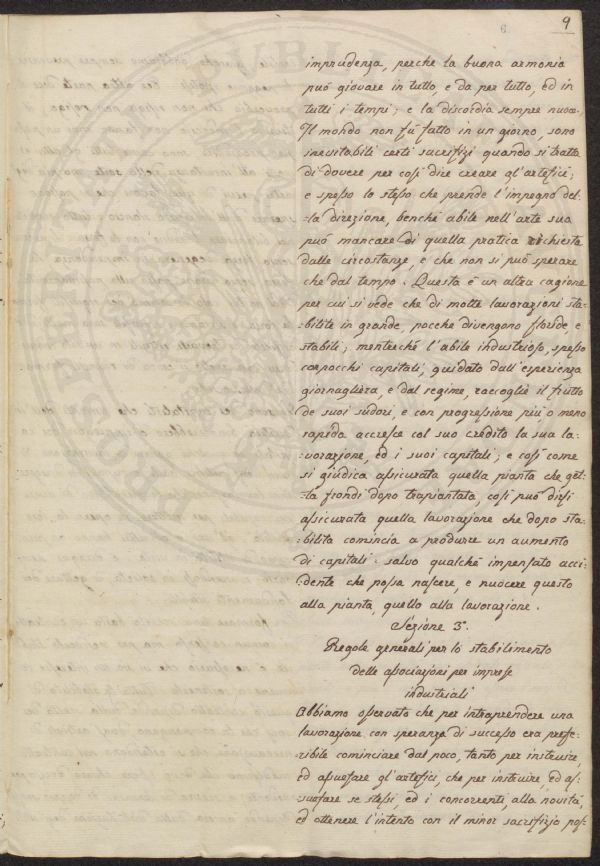 9
imprudenza, perche la buona armonia
può giovare in tutto, e da per tutto, ed in
tutti i tempi; e la discordia sempre nuoce.
Il mondo non fù fatto in un giorno, sono
inevitabili certi sacrifizj quando si tratta
di dovere per così dire creare gl'artefici;
e spesso lo stesso che prende l'impegno del-
-la direzione, benchè abile nell'arte sua
può mancare di quella pratica richiesta
dalle circostanze, e che non si può sperare
che dal tempo. Questa è un altra cagione
per cui si vede che di molte lavorazioni sta-
bilite in grande, pocche divengono floride, e
stabili; mentrechè l'abile industrioso, spesso
con pocchi capitali, guidato dall'esperienza
giornagliera, e dal regime, raccoglie il frutto
de suoi sudori, e con progressione più o meno
rapida accresce col suo credito la sua la-
-vorazione, ed i suoi capitali; e così come
si giudica assicurata quella pianta che get-
-ta frondi dopo trapiantata, così può dirsi
assicurata quella lavorazione che dopo sta-
-bilita comincia a produrre un aumento
di capitali salvo qualche impensato acci-
-dente che possa nascere, e nuocere questo
alla pianta, quello alla lavorazione.
Sezione 3ª
Regole generali per lo stabilimento
delle associazioni per imprese
industriali
Abbiamo osservato che per intraprendere una
lavorazione con speranza di successo era prefe-
-ribile cominciare dal poco, tanto per instruire,
ed assuefare gl'artefici, che per instruire, ed as-
-suefare se stessi, ed i concorrenti alla novità,
ed ottenere l'intento con il minor sacrifizio pos-